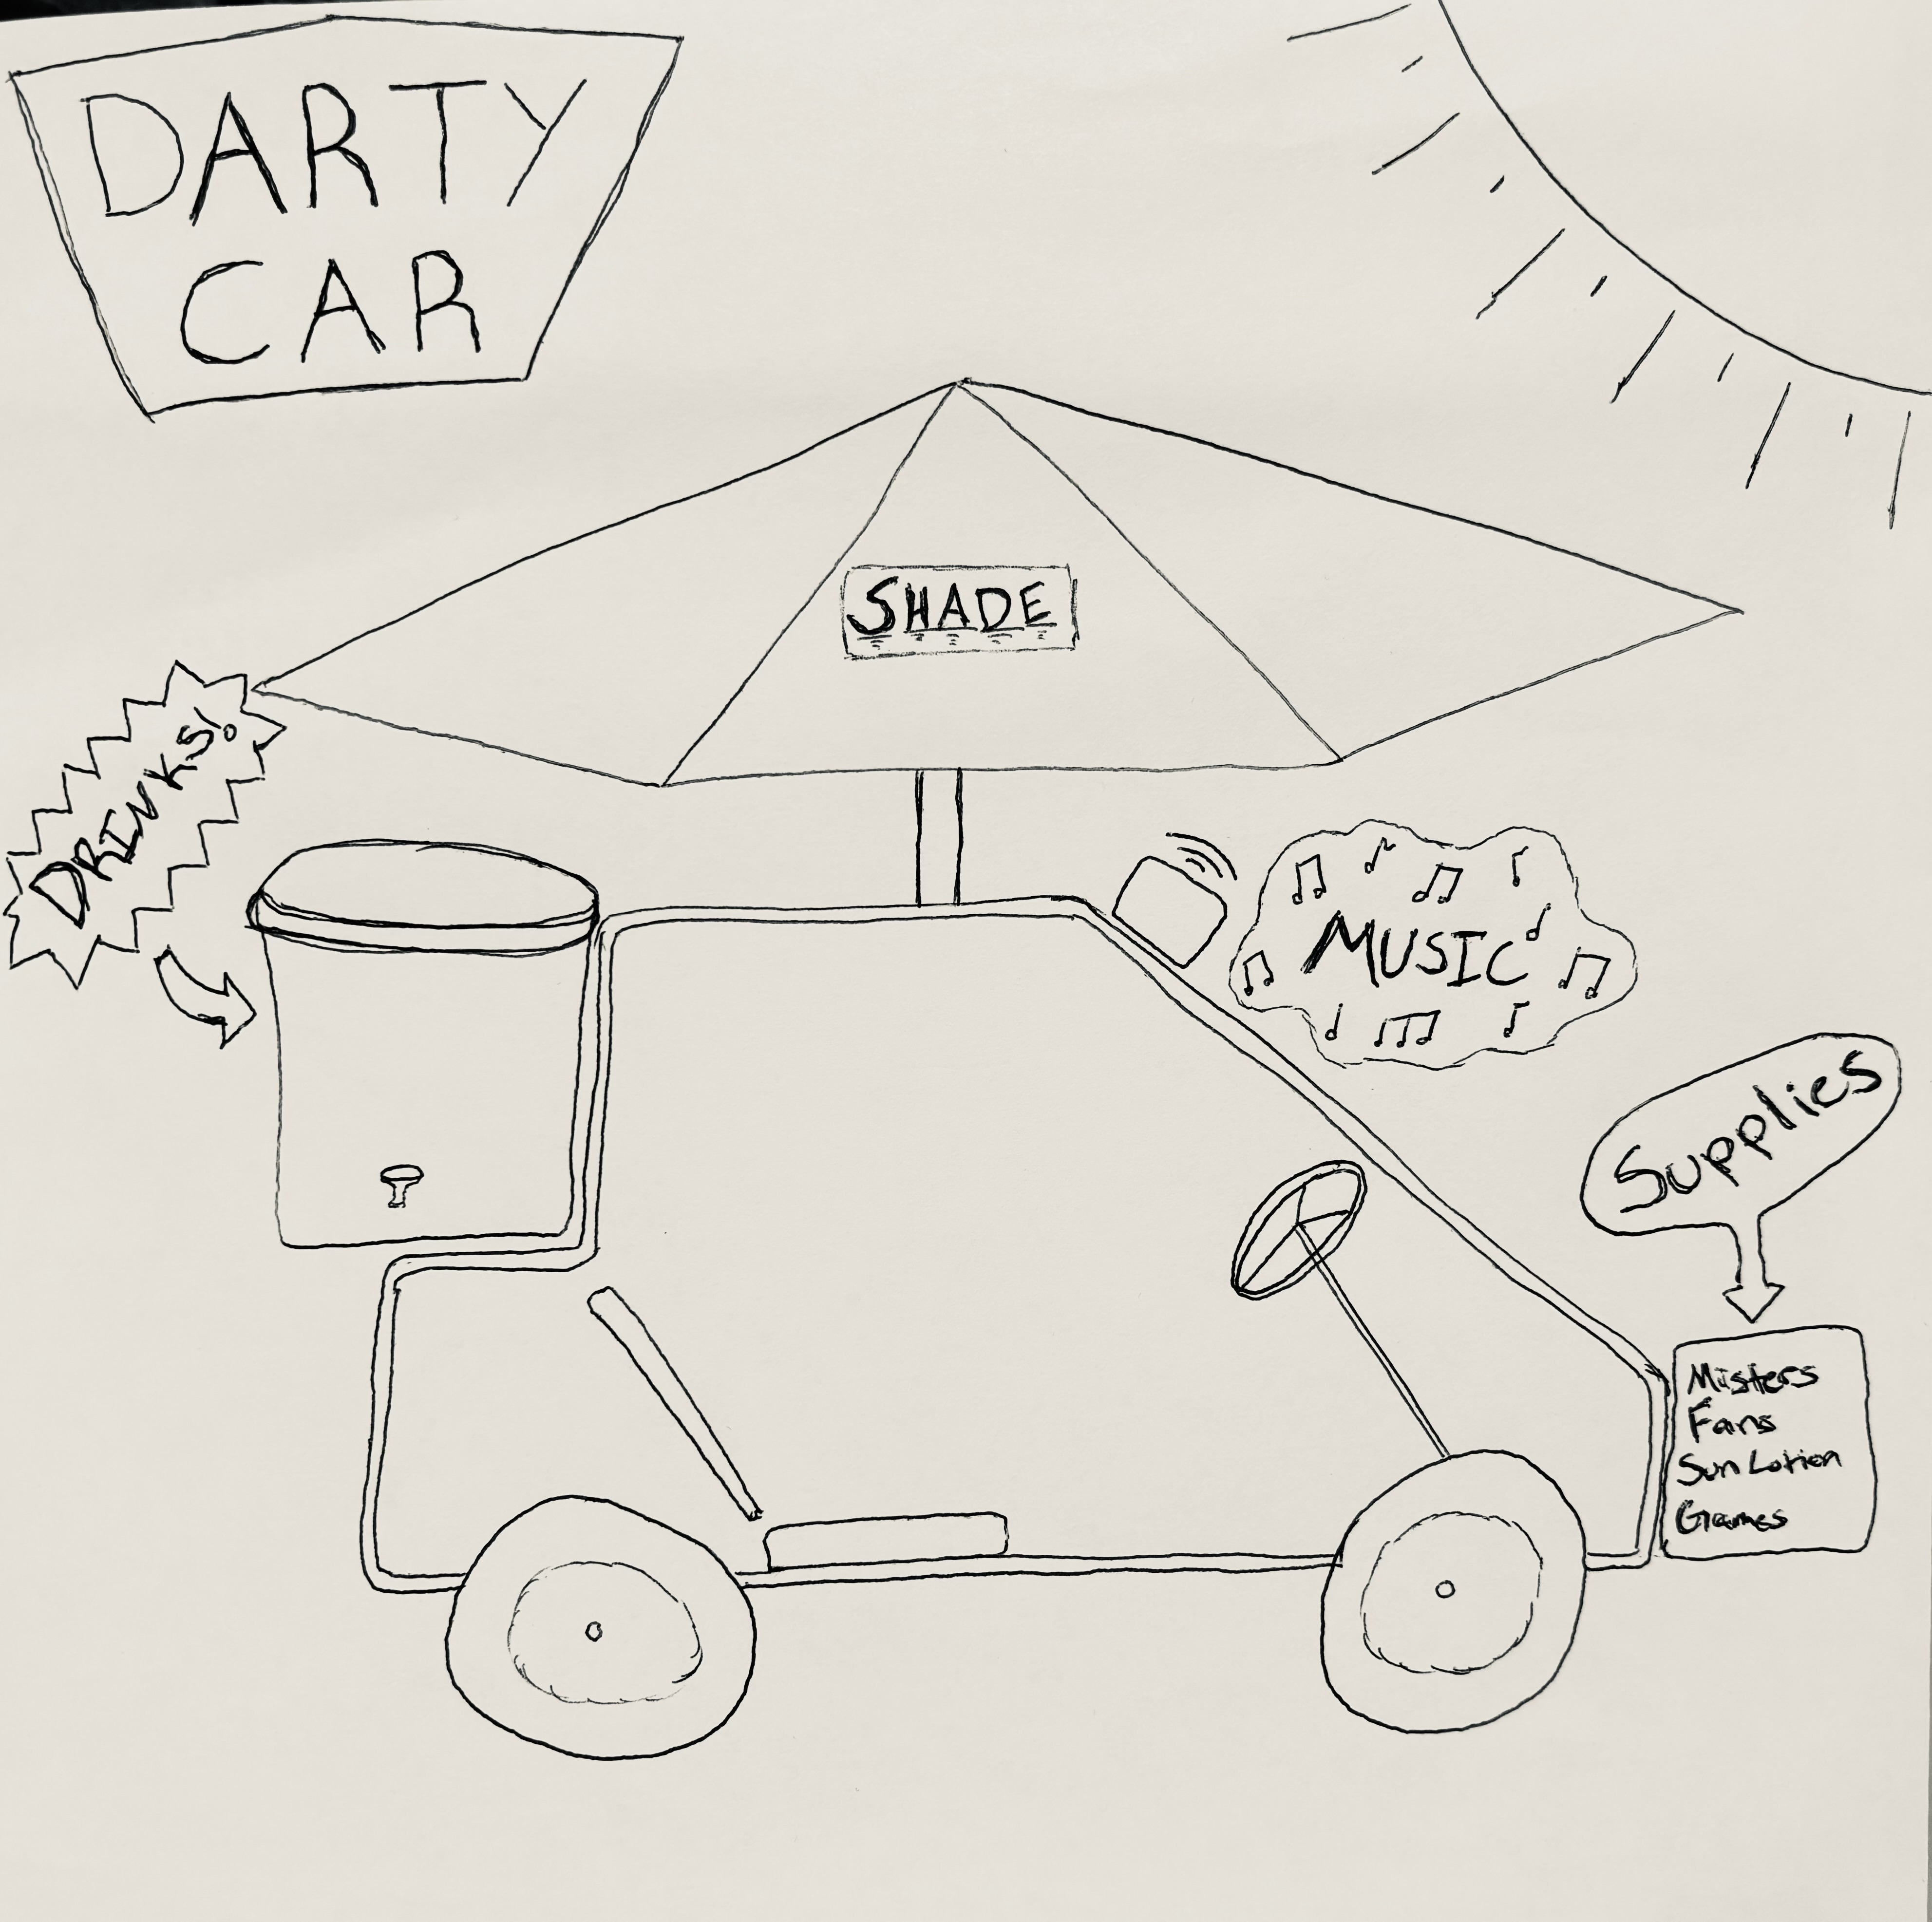 DARTY
CAR
SHADE
DRINKS!
MUSIC
Supplies
Misters
Fans
Sun Lotion
Games